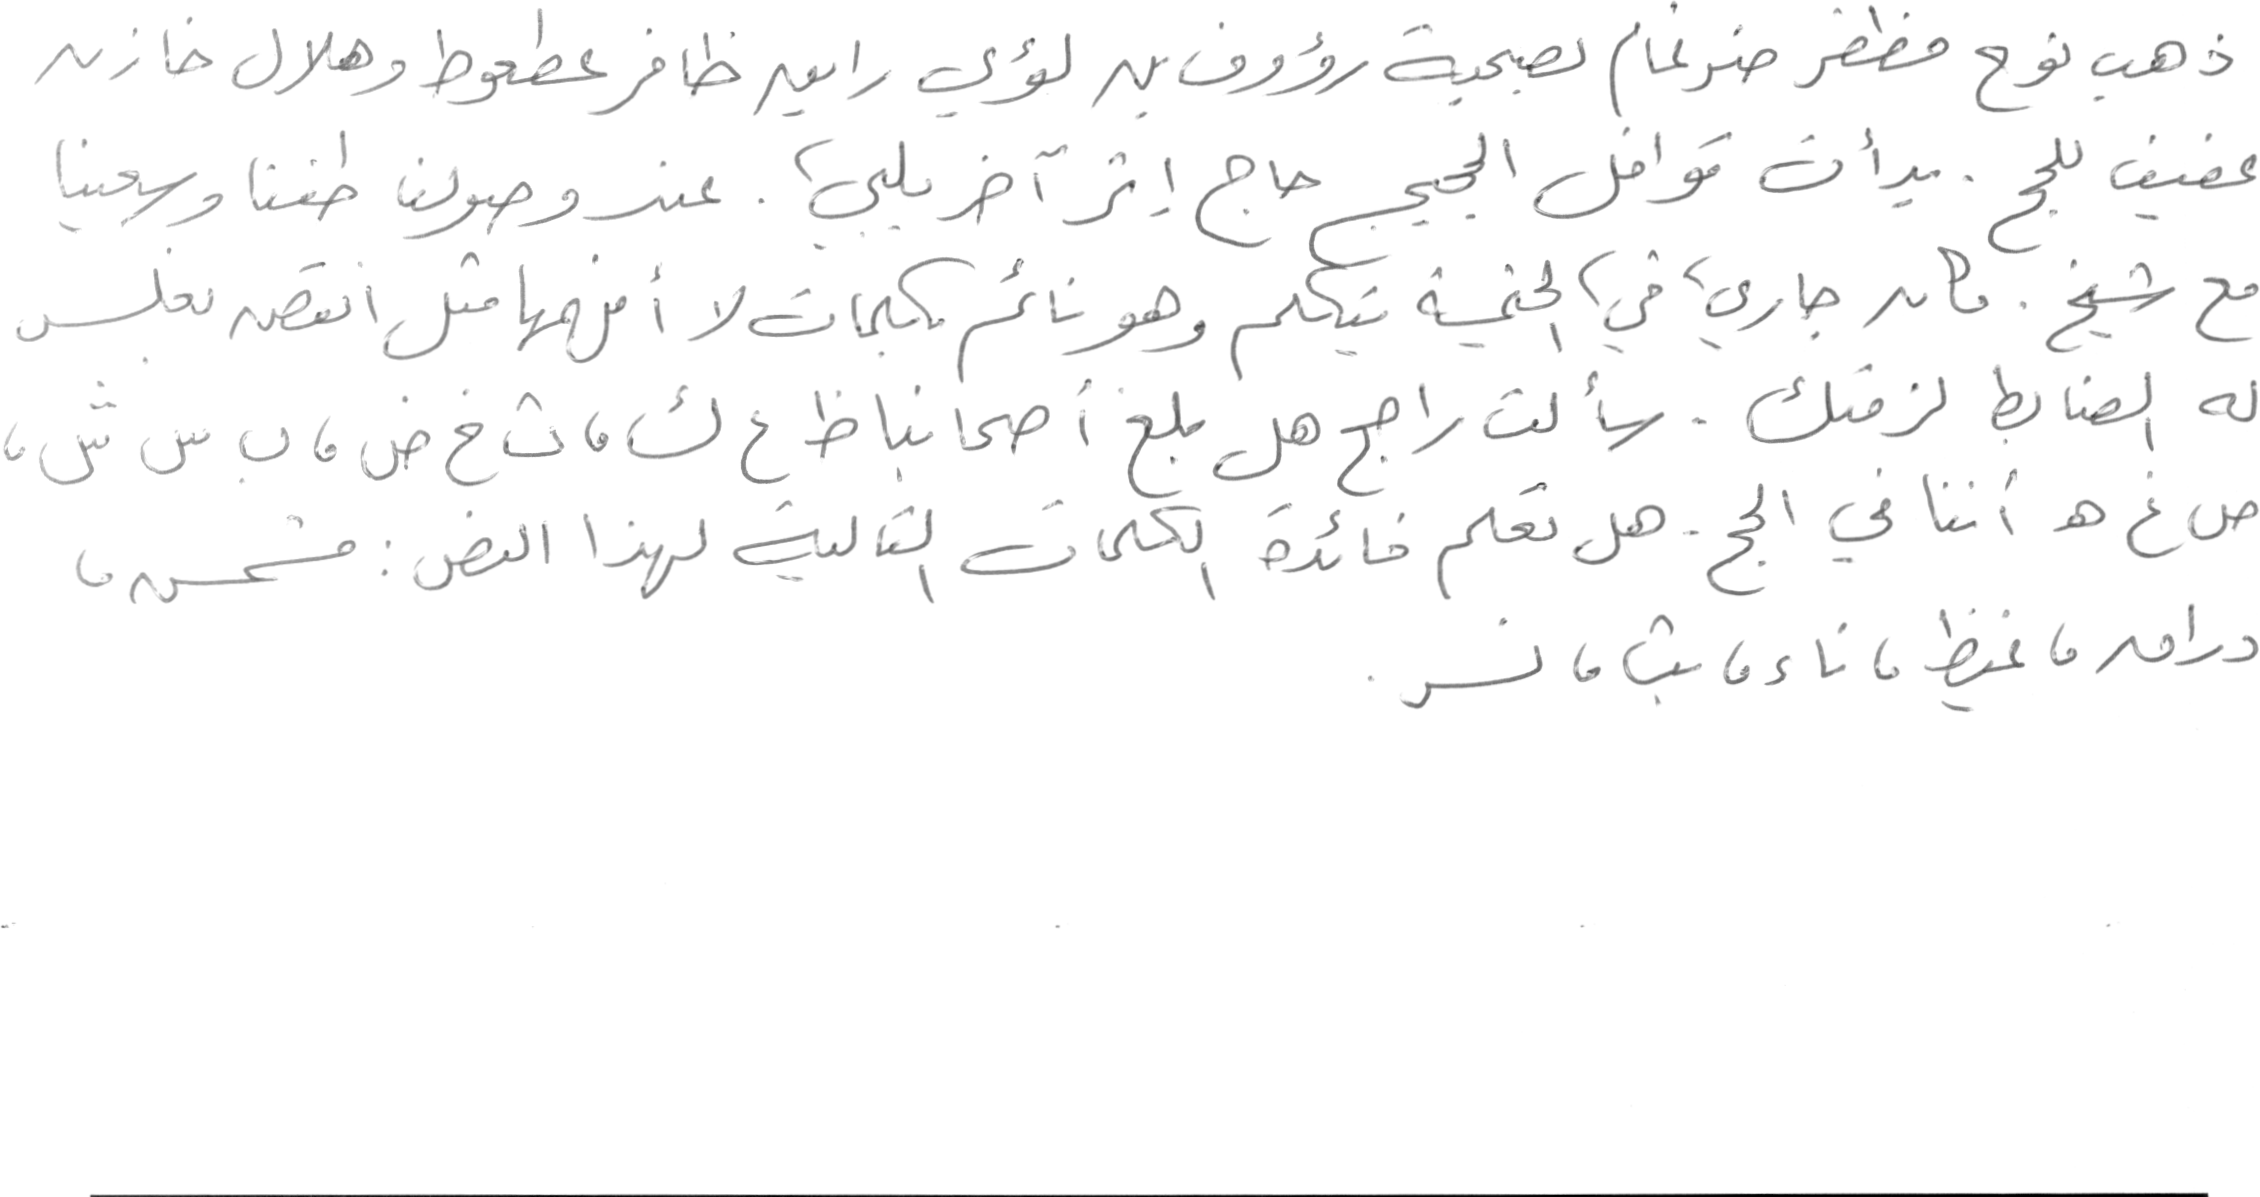 ذهب نوح مظفر ضرغام بصحبة رؤوف بن لؤي رامين ظافر عطعوط وهلال خازن
عفيف للحج . بدأت قوافل الحجيج حاج إثر آخر يلبي . عند وصولنا طفنا وسعينا
مع شيخ . كان جاري في الخيمة يتكلم وهو نائم بكلمات لا أفهمها مثل انقض بغلس
له الضابط لزمتك . سألت راجح هل بلغ أصحابنا ظ ع ك ، ث غ ض ، ب س ش ،
ص غ ه أننا في الحج . هل تعلم فائدة الكلمات التالية لهذا النص : مشمس ،
دراق ، غيظ ، ناء ، بث ، نسر .